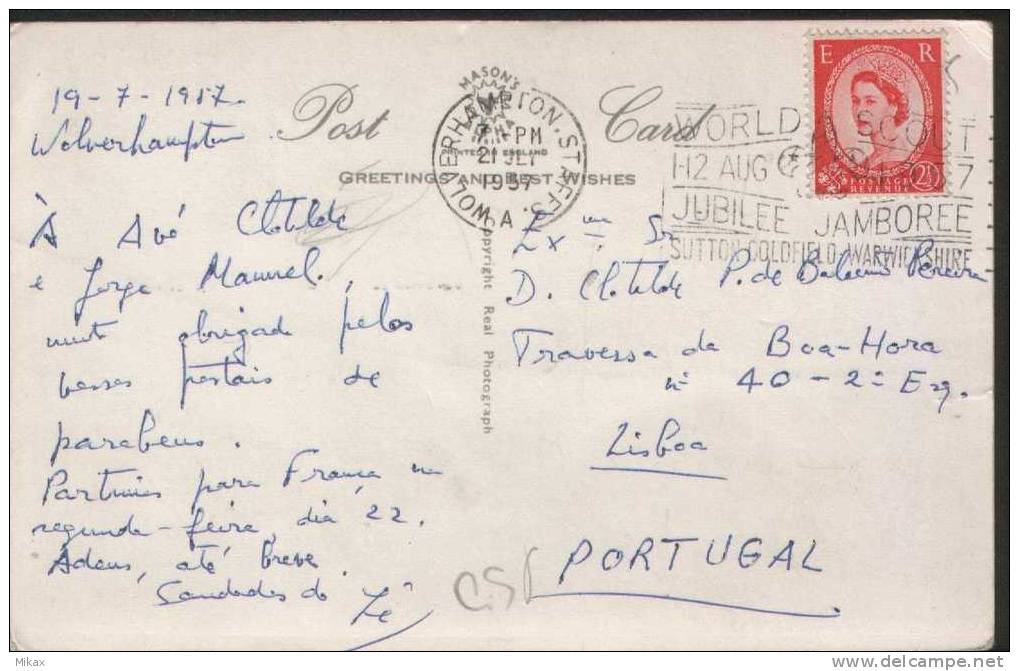 19-7-1957.
Wolverhampton
Post Card
MASON'S
ALPHA
PRINTED IN ENGLAND
GREETINGS AND BEST WISHES
WOLVERHAMPTON. STAFFS.
-PM
21 JLY
1957
A
E R
POSTAGE
REVENUE
2½
WORLD SCOUT
1-12 AUG 57
JUBILEE JAMBOREE
SUTTON COLDFIELD. WARWICKSHIRE
Copyright Real Photograph
À Avó Clotilde
e Jorge Manuel,
muito obrigado pelos
vossos postais de
parabens.
Partimos para França na
segunda-feira, dia 22.
Adeus, até breve.
Saudades do Zé
Exma Sra
D. Clotilde P. de Pereira
Travessa da Boa-Hora
nº 40-2º Esq.
Lisboa
PORTUGAL
Mikax
delcampe.net